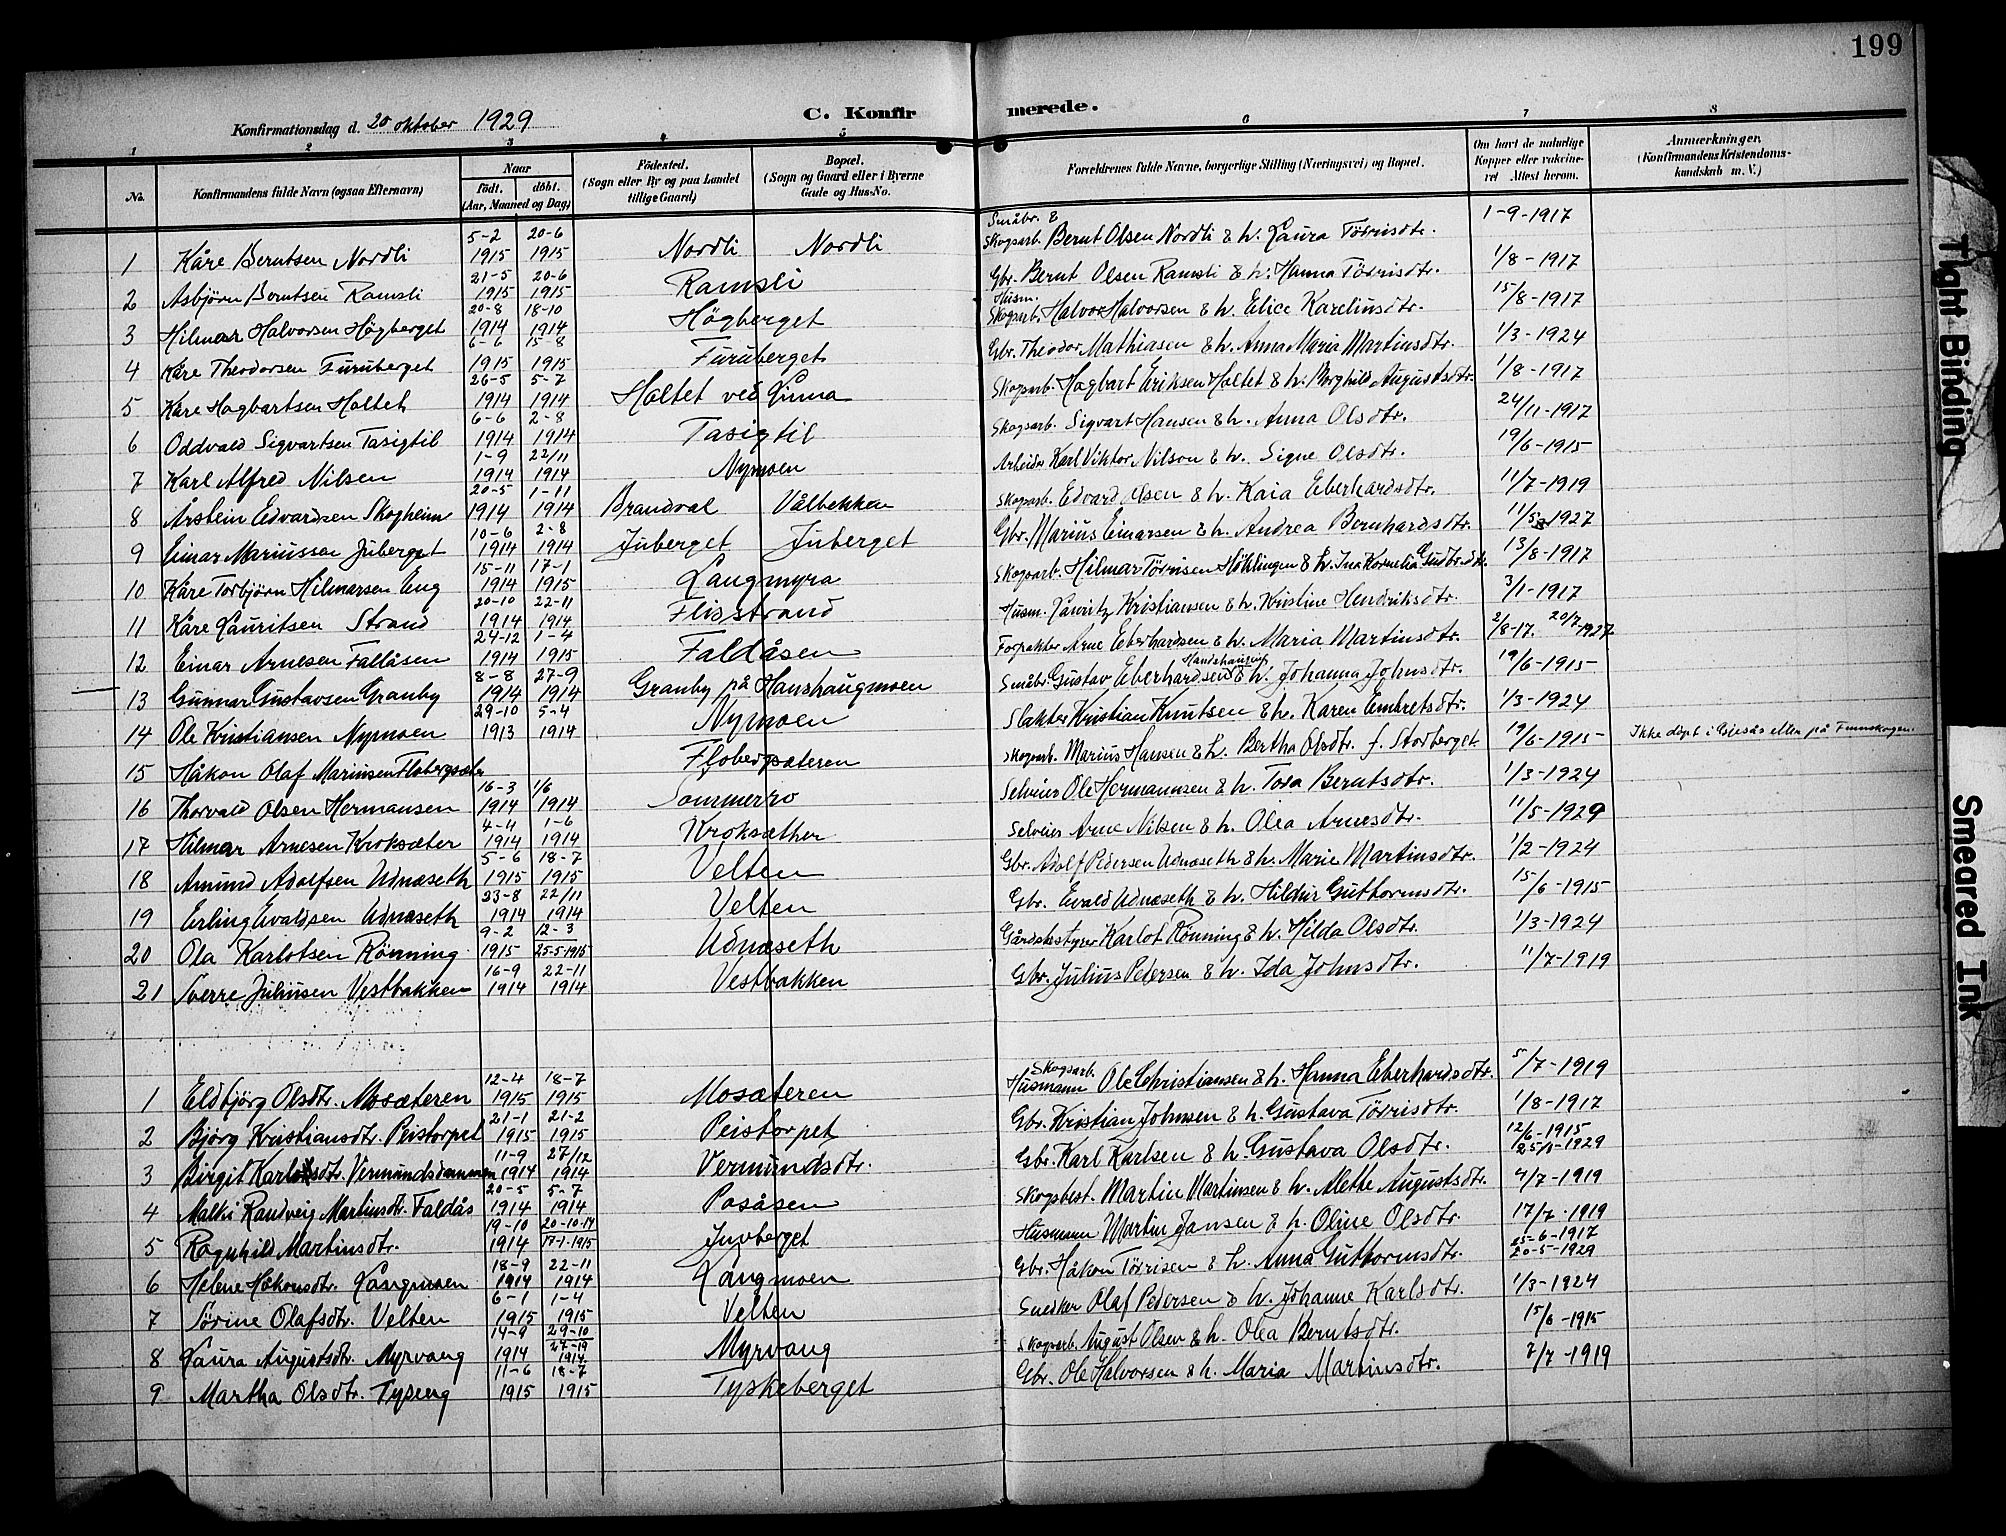 199
Konfirmationsdag d. 20 oktober 1929
C. Konfirmerede.
1 2 3 4 5 6 7 8
No.
Konfirmandens fulde Navn (ogsaa Efternavn)
Naar
födt. döbt.
(Aar, Maaned og Dag)
Födested.
(Sogn eller By og paa Landet
tillige Gaard)
Bopæl.
(Sogn og Gaard eller i Byerne
Gade og Hus-No.
Forældrenes fulde Navne, borgerlige Stilling (Næringsvei) og Bopæl.
Om havt de naturlige
Kopper eller vaksine-
ret Attest herom.
Anmærkninger.
(Konfirmandens Kristendoms-
kundskab m. V.)
1 Kåre Berntsen Nordli 5-2 1915 20-6 1915 Nordli Nordli Småbr. & Skogsarb. Bernt Olsen Nordli & h. Laura Törrisdtr. 1-9-1917
2 Asbjörn Berntsen Ramsli 21-5 1915 20-6 1915 Ramsli Gbr. Bernt Olsen Ramsli & h. Hanna Törrisdtr. 1/8-1917
3 Hilmar Halvorsen Högberget 20-8 1914 18-10 1914 Högberget Husm. Skogsarb. Halvor Halvorsen & h. Elice Karelinsdtr. 15/8-1917
4 Kåre Theodorsen Furuberget 6-6 1915 15-8 1915 Furuberget Gbr. Theodor Mathiasen & h. Anna Maria Martinsdtr. 1/3-1924
5 Kåre Hagbartsen Holtet 26-5 1914 5-7 1914 Holtet ved Linna Skogsarb. Hagbart Eriksen Holtet & h. Borghild Augustsdtr. 1/8-1917
6 Oddvald Sigvartsen Tasigtil 6-6 1914 2-8 1914 Tasigtil Skogsarb. Sigvart Hansen & h. Anna Olsdtr. 24/11-1917
7 Karl Alfred Nilsen 1-9 1914 22/11 1914 Nymoen Arbeider Karl Viktor Nilson & h. Signe Olsdtr. 19/6-1915
8 Arstein Edvardsen Skogheim 20-5 1914 1-11 1914 Brandval Vålbekken Skogsarb. Edvard Olsen & h. Kaia Eberhardsdtr. 11/7-1919
9 Einar Mariussen Juberget 10-6 1914 2-8 1914 Juberget Juberget Gbr. Marius Einarsen & h. Andrea Bernhardsdtr. 11/5-1927
10 Kåre Torbjörn Hilmarsen Eng 15-11 1914 17-1 1915 Langmyra Skogsarb. Hilmar Törrisen & h. Ina Kornelia Gudbr.dtr. 13/8-1917
11 Kåre Lauritsen Strand 20-10 1914 22-11 1914 Flisstrand Husm. Lauritz Kristiansen & h. Kristine Hendriksdtr. 3/1-1917
12 Einar Arnesen Fallåsen 24-12 1914 1-4 1915 Faldåsen Forpakter Arne Eberhardsen & h. Maria Martinsdtr. 2/8-17. 20/7-1927
13 Gunnar Gustavsen Granby 8-8 1914 27-9 1914 Granby på Hanshaugmoen Småbr. Gustav Eberhardsen & h. Johanna Johnsdtr. 19/6-1915
14 Ole Kristiansen Nymoen 29-10 1913 5-4 1914 Nymoen Slakter Kristian Knutsen & h. Karen Embretsdtr. 1/3-1924
15 Håkon Olaf Mariusen Flobergsæter Flobergsæteren Skogsarb. Marius Hansen & h. Bertha Olsdtr. f. Storberget 19/6-1915 Ikke döpt i Gjesås eller på Finnskogen.
16 Thorvald Olsen Hermansen 16-3 1914 1/6 1914 Sommerro Selveier Ole Hermannsen & h. Tora Berntsdtr. 1/3-1924
17 Hilmar Arnesen Kroksæter 4-4 1914 1-6 1914 Kroksæther Selveier Arne Nilsen & h. Olea Arnesdtr. 11/5-1929
18 Amund Adolfsen Udnæseth 5-6 1915 18-7 1915 Velten Gbr. Adolf Pedersen Udnæseth & h. Marie Martinsdtr. 1/2-1924
19 Erling Evaldsen Udnæseth 23-8 1914 22/11 1914 Velten Gbr. Evald Udnæseth & h. Hildur Guthormsdtr. 15/6-1915
20 Ola Karlotsen Rönning 9-2 1915 12-3 25-5-1915 Udnæseth Gårdsbestyrer Karlot Rönning & h. Hilda Olsdtr. 1/3-1924
21 Sverre Juliusen Vestbakken 16-9 1914 22-11 1914 Vestbakken Gbr. Julius Pedersen & h. Ida Johnsdtr. 11/7-1919
1 Eldbjörg Olsdtr. Mosæteren 12-4 1915 18-7 1915 Mosæteren Skogsarb. Husmann Ole Christiansen & h. Hanna Eberhardsdtr. 5/7-1919
2 Bjørg Kristiansdtr. Peistorpet 21-1 1915 21-2 1915 Peistorpet Gbr. Kristian Johnsen & h. Gustava Törrisdtr. 1/8-1917
3 Birgit Karlsdtr. Vermundsdammen 11-9 1914 27/12 1914 Vermundsdtr. Gbr. Karl Karlsen & h. Gustava Olsdtr. 12/6-1915
4 Malki Randveig Martinsdtr. Faldås 20-5 1914 5-7 1914 Posåsen Skogsbest. Martin Martinsen & h. Alette Augustsdtr. 4/7-1919
5 Ragnhild Martinsdtr. 19-10 1914 20-10-14 17-1-1915 Juvberget Husmann Martin Jansen & h. Oline Olsdtr. 17/7-1919
6 Helene Håkonsdtr. Langmoen 18-9 1914 22-11 1914 Langmoen Gbr. Håkon Törrisen & h. Anna Guthormsdtr. 25-6-1917 20-5-1929
7 Sörine Olafsdtr. Velten 6-1 1915 1-4 1915 Velten Snedker Olaf Pedersen & h. Johanne Karlsdtr. 1/3-1924
8 Laura Augustsdtr. Myrvang 14-9 1914 29-10 1914 Myrvang Skogsarb. August Olsen & h. Olea Berntsdtr. 15/6-1915
9 Martha Olsdtr. Tyseng 11-6 1915 18-7 1915 Tyskeberget Gbr. Ole Halvorsen & h. Maria Martinsdtr. 7/7-1919
Tight Binding
Smeared Ink